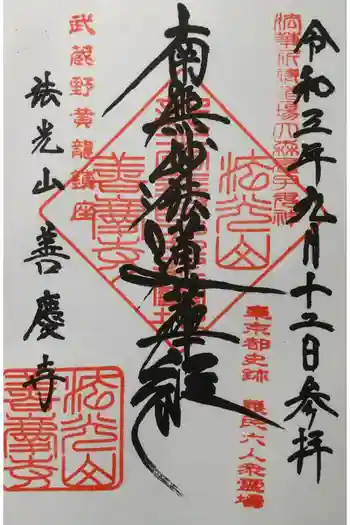 令和三年九月十二日参拝
南無妙法蓮華経
法光山善慶寺
武蔵野黄龍鎮座
東京都史跡 義民六人衆霊場
法光山
善慶寺